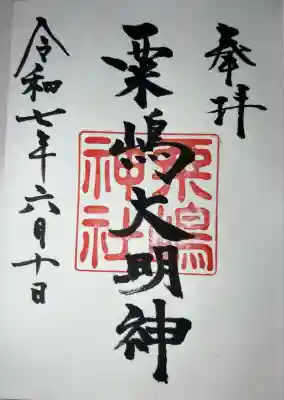 奉拝
粟嶋大明神
粟嶋神社
令和七年六月十日